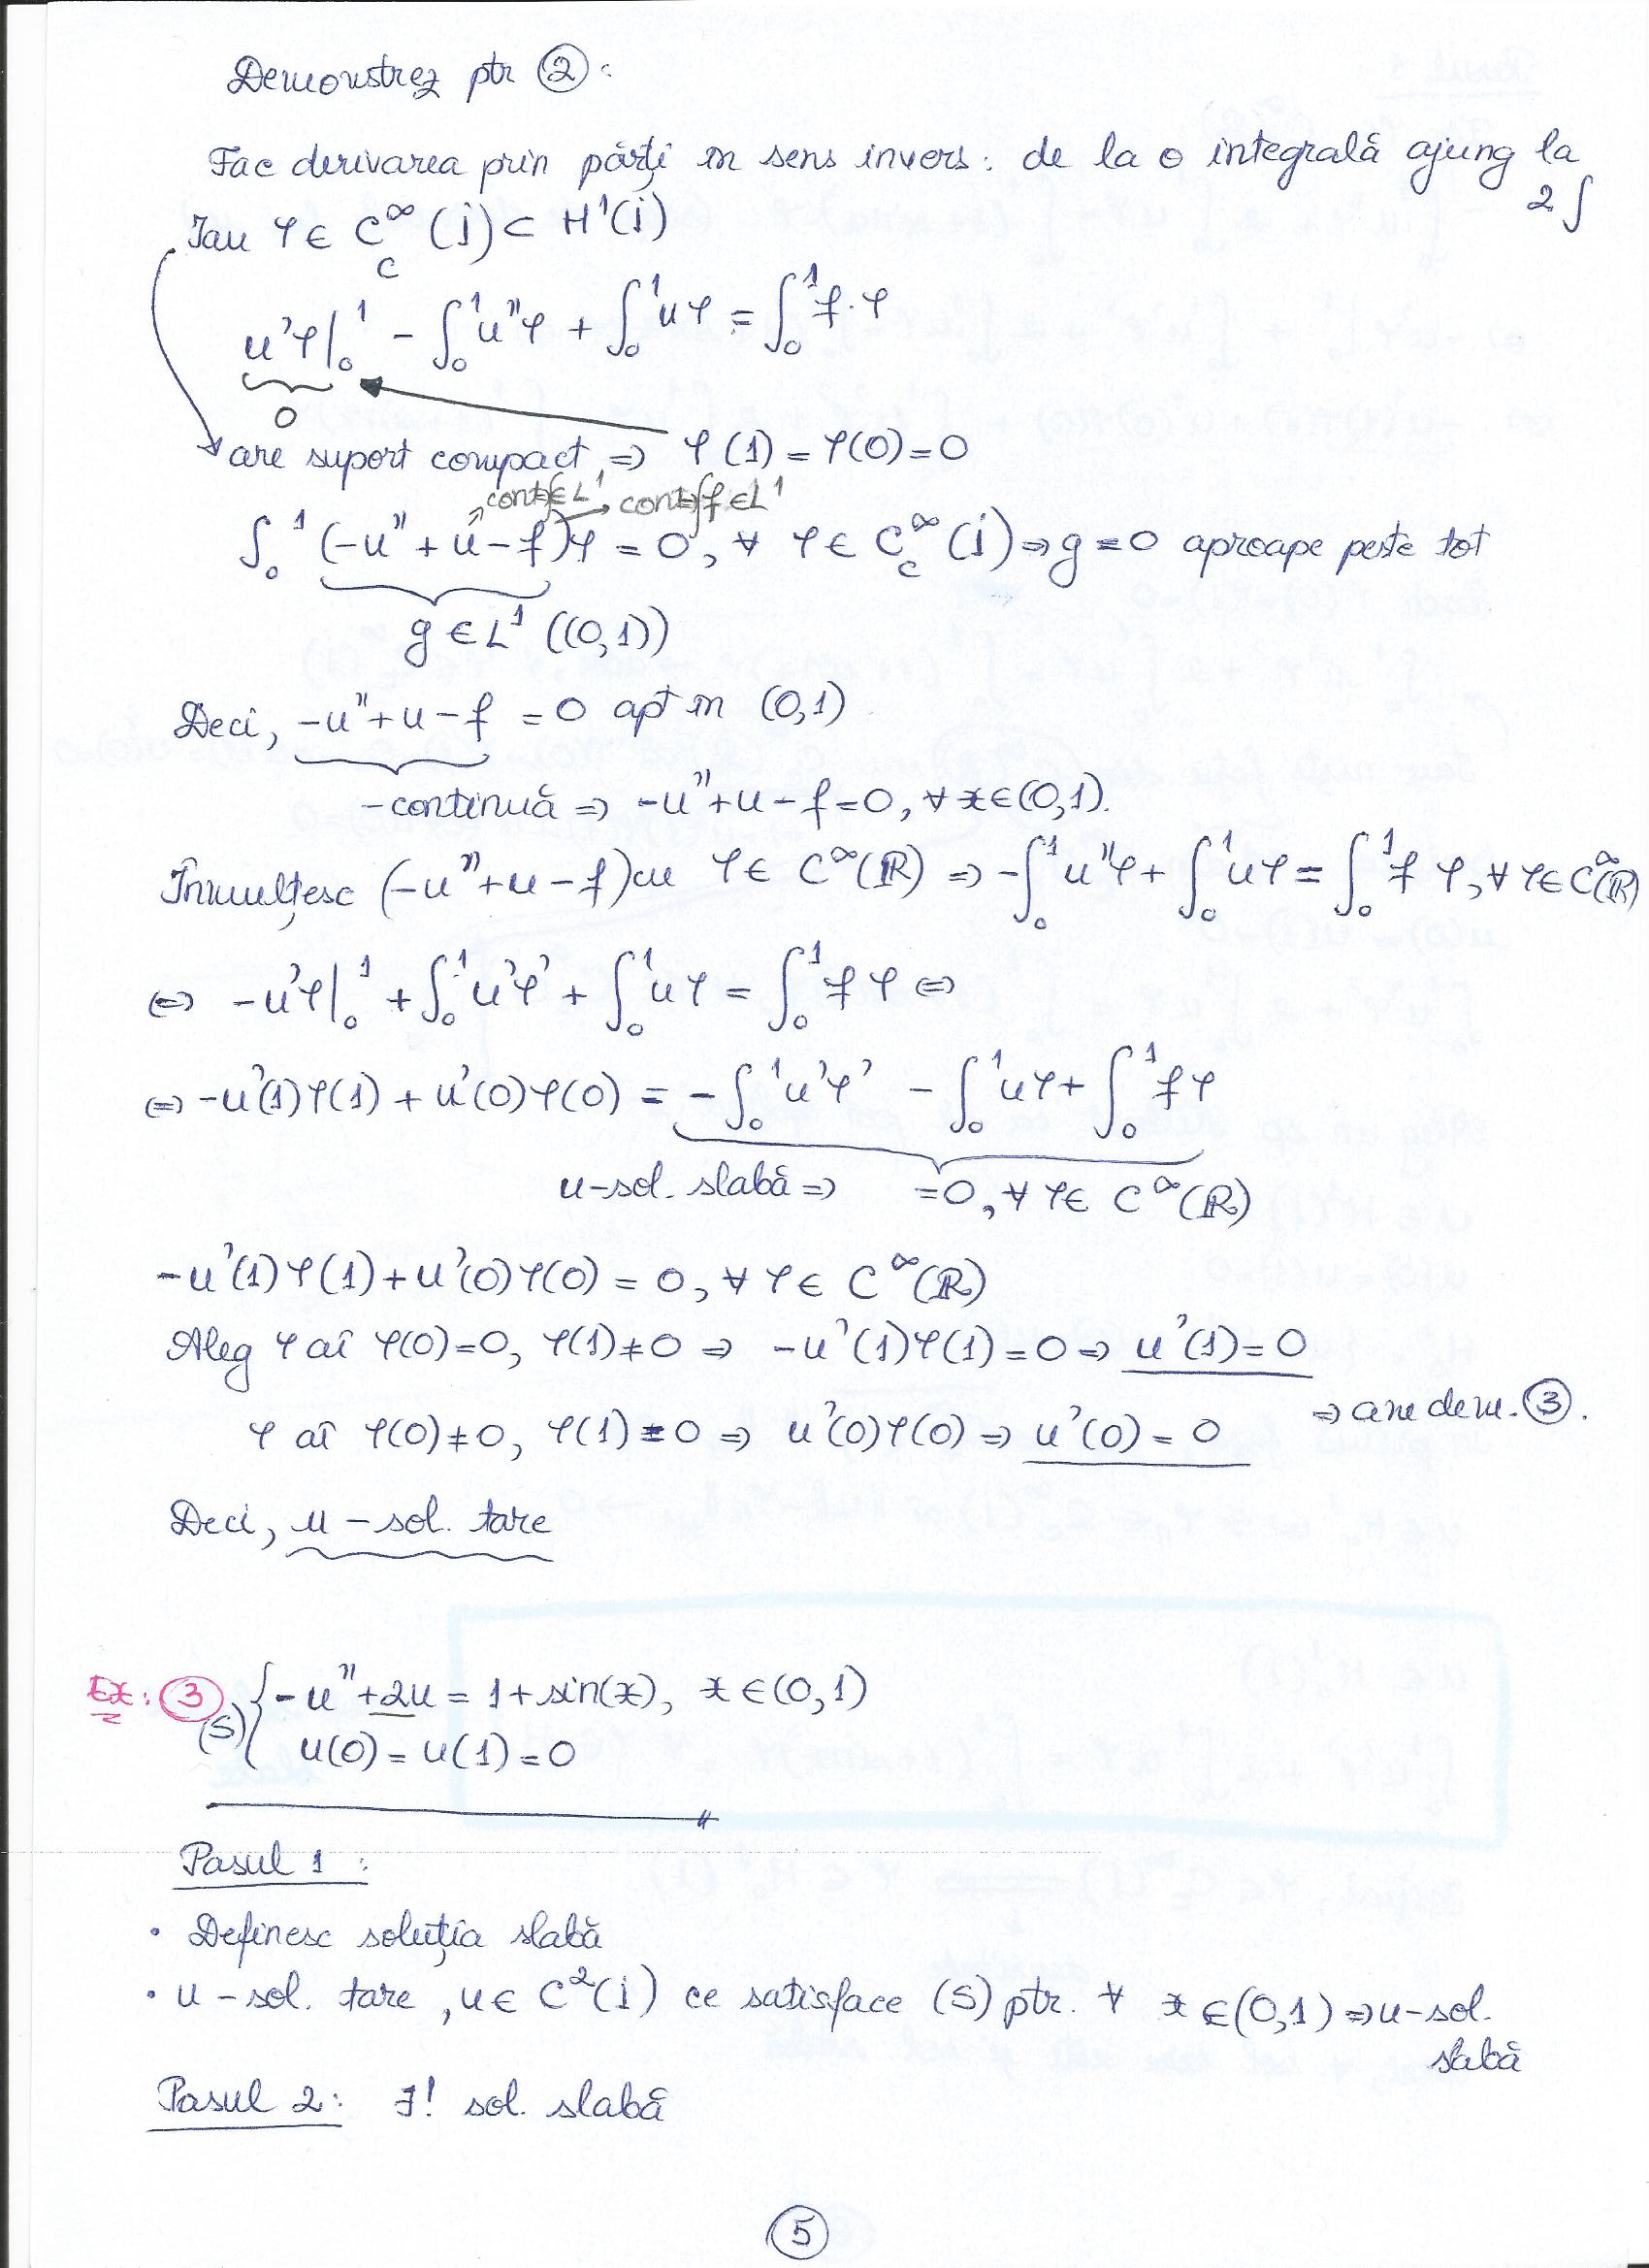 Demonstrez ptr ②:
Fac derivarea prin părți în sens invers: de la o integrală ajung la 2∫
Iau φ ∈ C_c^∞(i) ⊂ H¹(i)
u'φ|₀¹ - ∫₀¹ u''φ + ∫₀¹ uφ = ∫₀¹ f·φ
0
are suport compact ⇒ φ(1) = φ(0) = 0
cont ⇒ ∈ L¹ → cont ⇒ f ∈ L¹
∫₀¹ (-u'' + u - f)φ = 0, ∀ φ ∈ C_c^∞(i) ⇒ g = 0 aproape peste tot
g ∈ L¹((0,1))
Deci, -u'' + u - f = 0 apt în (0,1)
- continuă ⇒ -u'' + u - f = 0, ∀ x ∈ (0,1).
Înmulțesc (-u'' + u - f) cu φ ∈ C^∞(ℝ) ⇒ -∫₀¹ u''φ + ∫₀¹ uφ = ∫₀¹ f φ, ∀ φ ∈ C^∞(ℝ)
⇔ -u'φ|₀¹ + ∫₀¹ u'φ' + ∫₀¹ uφ = ∫₀¹ f φ ⇔
⇔ -u'(1)φ(1) + u'(0)φ(0) = -∫₀¹ u'φ' - ∫₀¹ uφ + ∫₀¹ fφ
u-sol. slabă ⇒ = 0, ∀ φ ∈ C^∞(ℝ)
-u'(1)φ(1) + u'(0)φ(0) = 0, ∀ φ ∈ C^∞(ℝ)
Aleg φ aî φ(0) = 0, φ(1) ≠ 0 ⇒ -u'(1)φ(1) = 0 ⇒ u'(1) = 0
⇒ am dem. ③.
φ aî φ(0) ≠ 0, φ(1) = 0 ⇒ u'(0)φ(0) ⇒ u'(0) = 0
Deci, u - sol. tare
Ex: ③ (S) { -u'' + 2u = 1 + sin(x), x ∈ (0,1)
u(0) = u(1) = 0
Pasul 1:
• Definesc soluția slabă
• u - sol. tare, u ∈ C²(i) ce satisface (S) ptr. ∀ x ∈ (0,1) ⇒ u-sol. slabă
Pasul 2: ∃! sol. slabă
⑤